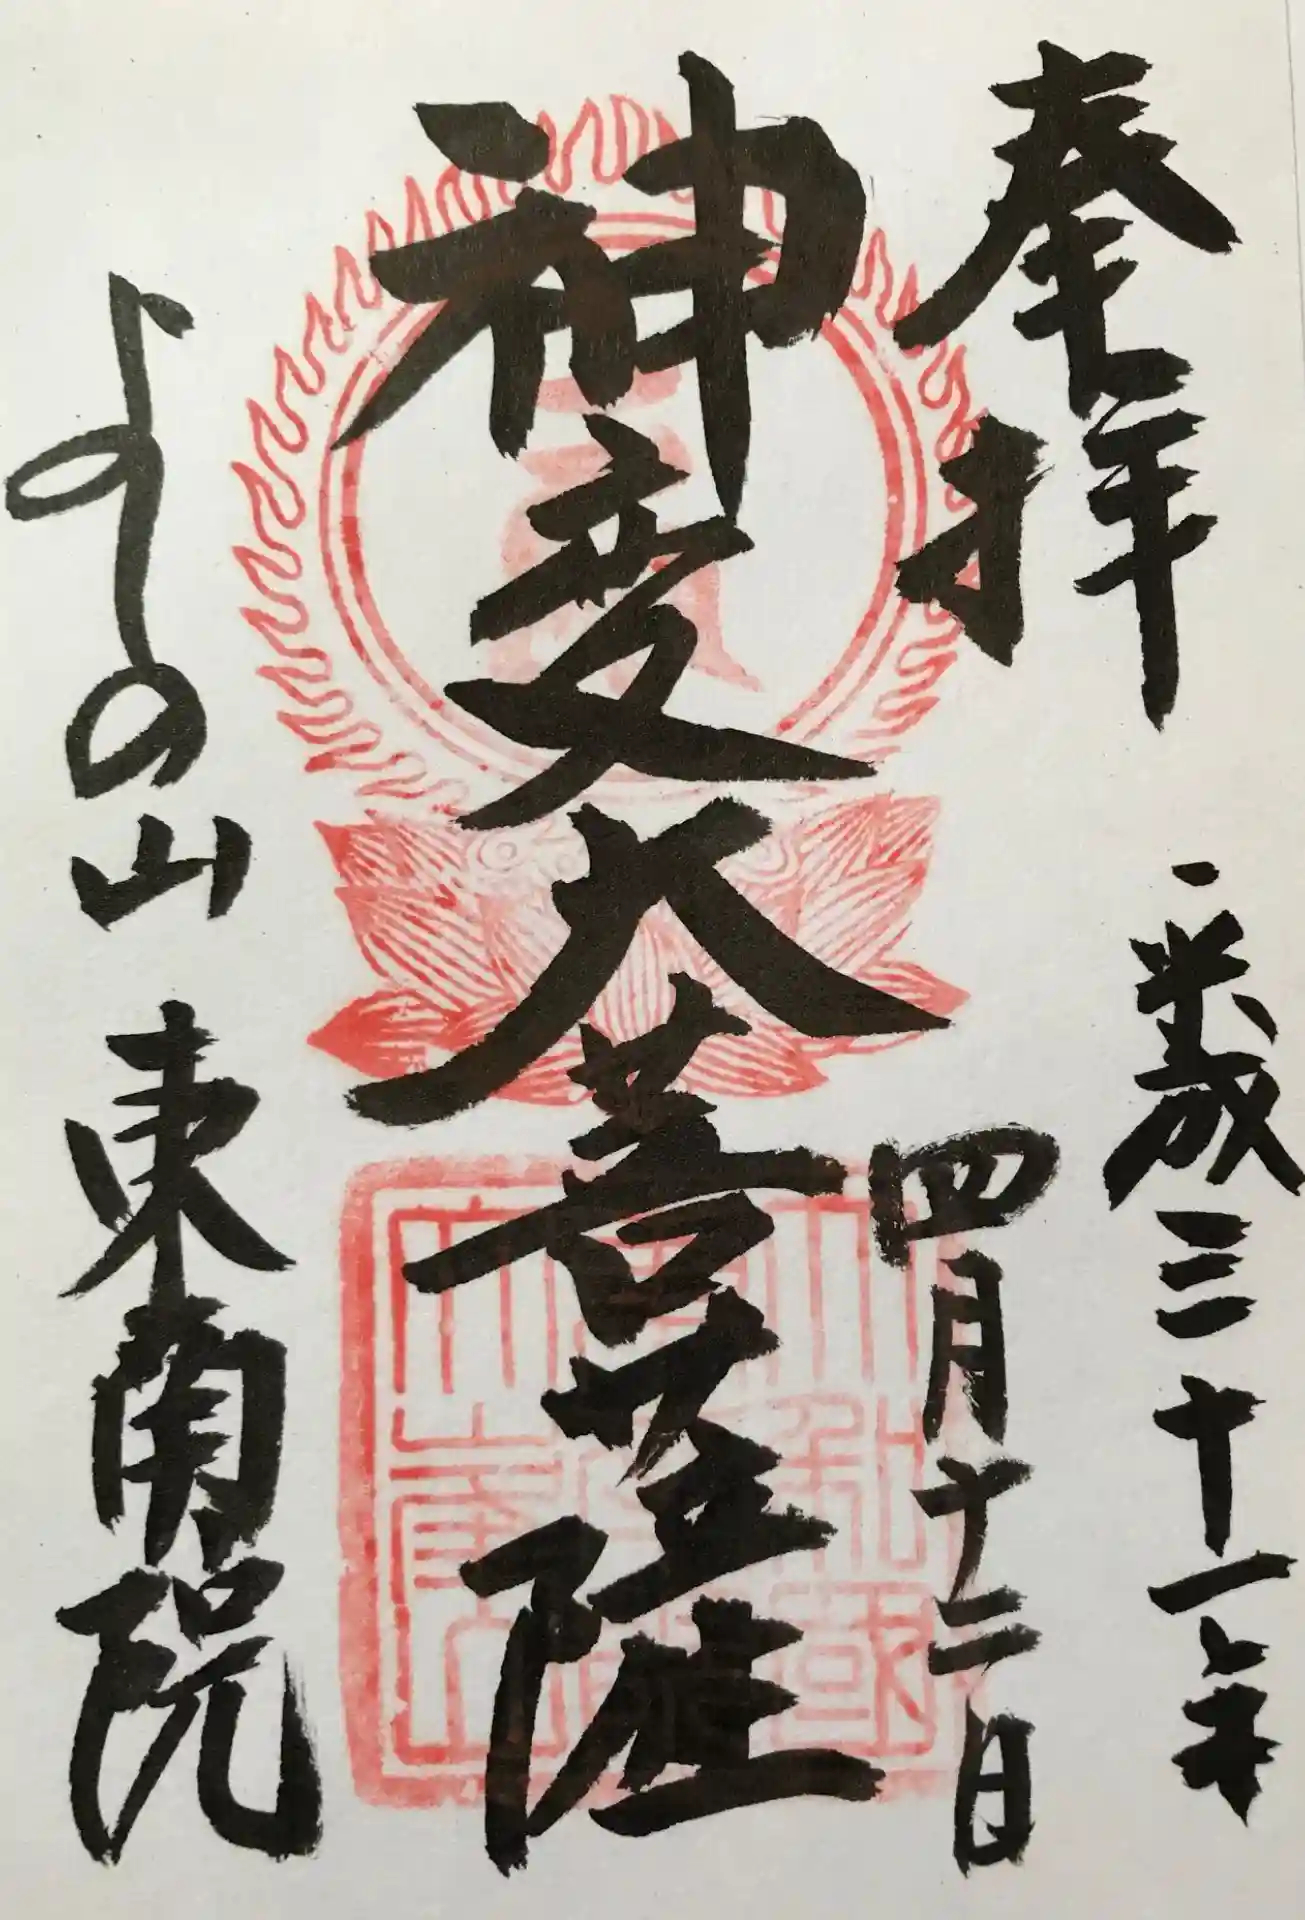 奉拝
平成三十一年
四月十二日
神変大菩薩
よしの山 東南院